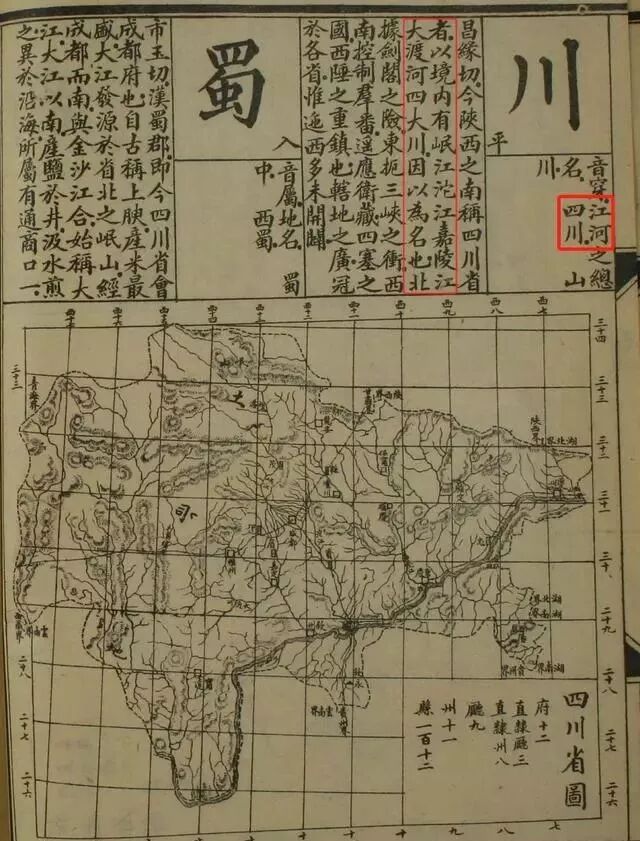 川
平
音穿。江河之總
名。四川。山
川
昌緣切。今陜西之南稱四川省
者。以境內有岷江沱江嘉陵江
大渡河四大川因以為名也。北
據劍閣之險。東扼三峽之衝。西
南控制羣番。遥應衛藏。四塞之
國。西陲之重鎮也。轄地之廣冠
於各省。惟迤西多未開闢
蜀
入
音屬。地名。蜀
中。西蜀。
市玉切。漢蜀郡。即今四川省會
成都府也。自古稱上腴。產米最
盛。大江發源於省北之岷山。經
成都而南。與金沙江合。始稱大
江。大江以南。產鹽於井。汲水煎
之。異於沿海。所屬有通商口一。
四川省圖
府十二
直隸廳三
直隸州八
廳九
州十一
縣一百十二
西七
西八
西九
西十
西十一
西十二
西十三
西十四
西十五
西十六
三十四
三十三
三十二
三十一
三十
二十九
二十八
二十七
二十六
三十三
二十八
二十七
二十六
青海界
陝西界
陝西界
湖北界
湖北界
湖南界
湖南界
貴州界
雲南界
雲南界
七
八
九
十
十一
十二
十三
十四